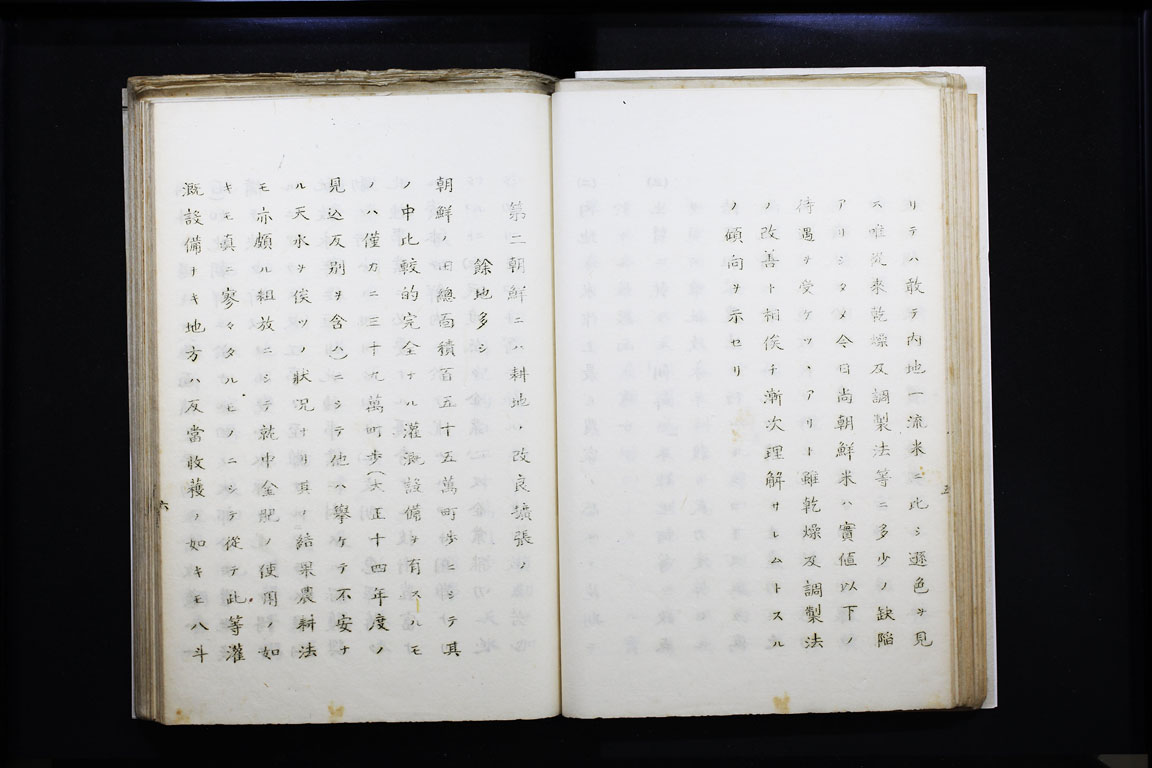 リテハ敢テ内地一流米ニ比シ遜色ヲ見
ス唯従来乾燥及調製法等ニ多少ノ缺陥
アリシタメ今日尚朝鮮米ハ實値以下ノ
待遇ヲ受ケツヽアリト雖乾燥及調製法
ノ改善ト相俟チ漸次理解サレムトスル
ノ傾向ヲ示セリ
五
第二朝鮮ニハ耕地ノ改良擴張ノ
餘地多シ
朝鮮ノ田總面積百五十五萬町歩ニシテ其
ノ中比較的完全ナル灌漑設備ヲ有スルモ
ノハ僅カニ三十九萬町歩(大正十四年度ノ
見込反別ヲ含ム)ニシテ他ハ擧ケテ不安ナ
ル天水ヲ俟ツノ狀況ナリ其ノ結果農耕法
モ亦頗ル組放ニシテ就中金肥ノ使用ノ如
キモ眞ニ寥々タルモノニシテ從テ此等灌
漑設備ナキ地方ハ反當收穫ノ如キモ八斗
六